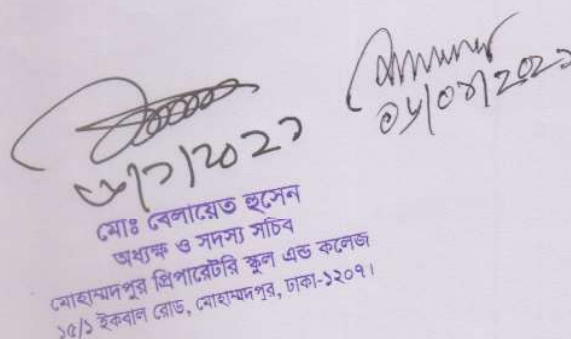 ০৬/০১/২০২১
মোঃ বেলায়েত হুসেন
অধ্যক্ষ ও সদস্য সচিব
মোহাম্মদপুর প্রিপারেটরি স্কুল এন্ড কলেজ
১৫/১ ইকবাল রোড, মোহাম্মদপুর, ঢাকা-১২০৭।